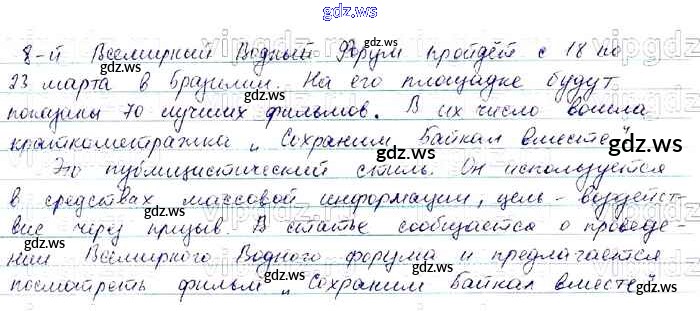 gdz.top
8-й Всемирный Водный Форум пройдёт с 18 по
23 марта в Бразилии. На его площадке будут
показаны 70 лучших фильмов. В их число вошла
короткометражка „Сохраним Байкал вместе"
Это публицистический стиль. Он используется
в средствах массовой информации, цель - воздейст-
вие через призыв. В статье сообщается о проведе-
нии Всемирного Водного форума и предлагается
посмотреть фильм „Сохраним Байкал вместе"
gdz.top